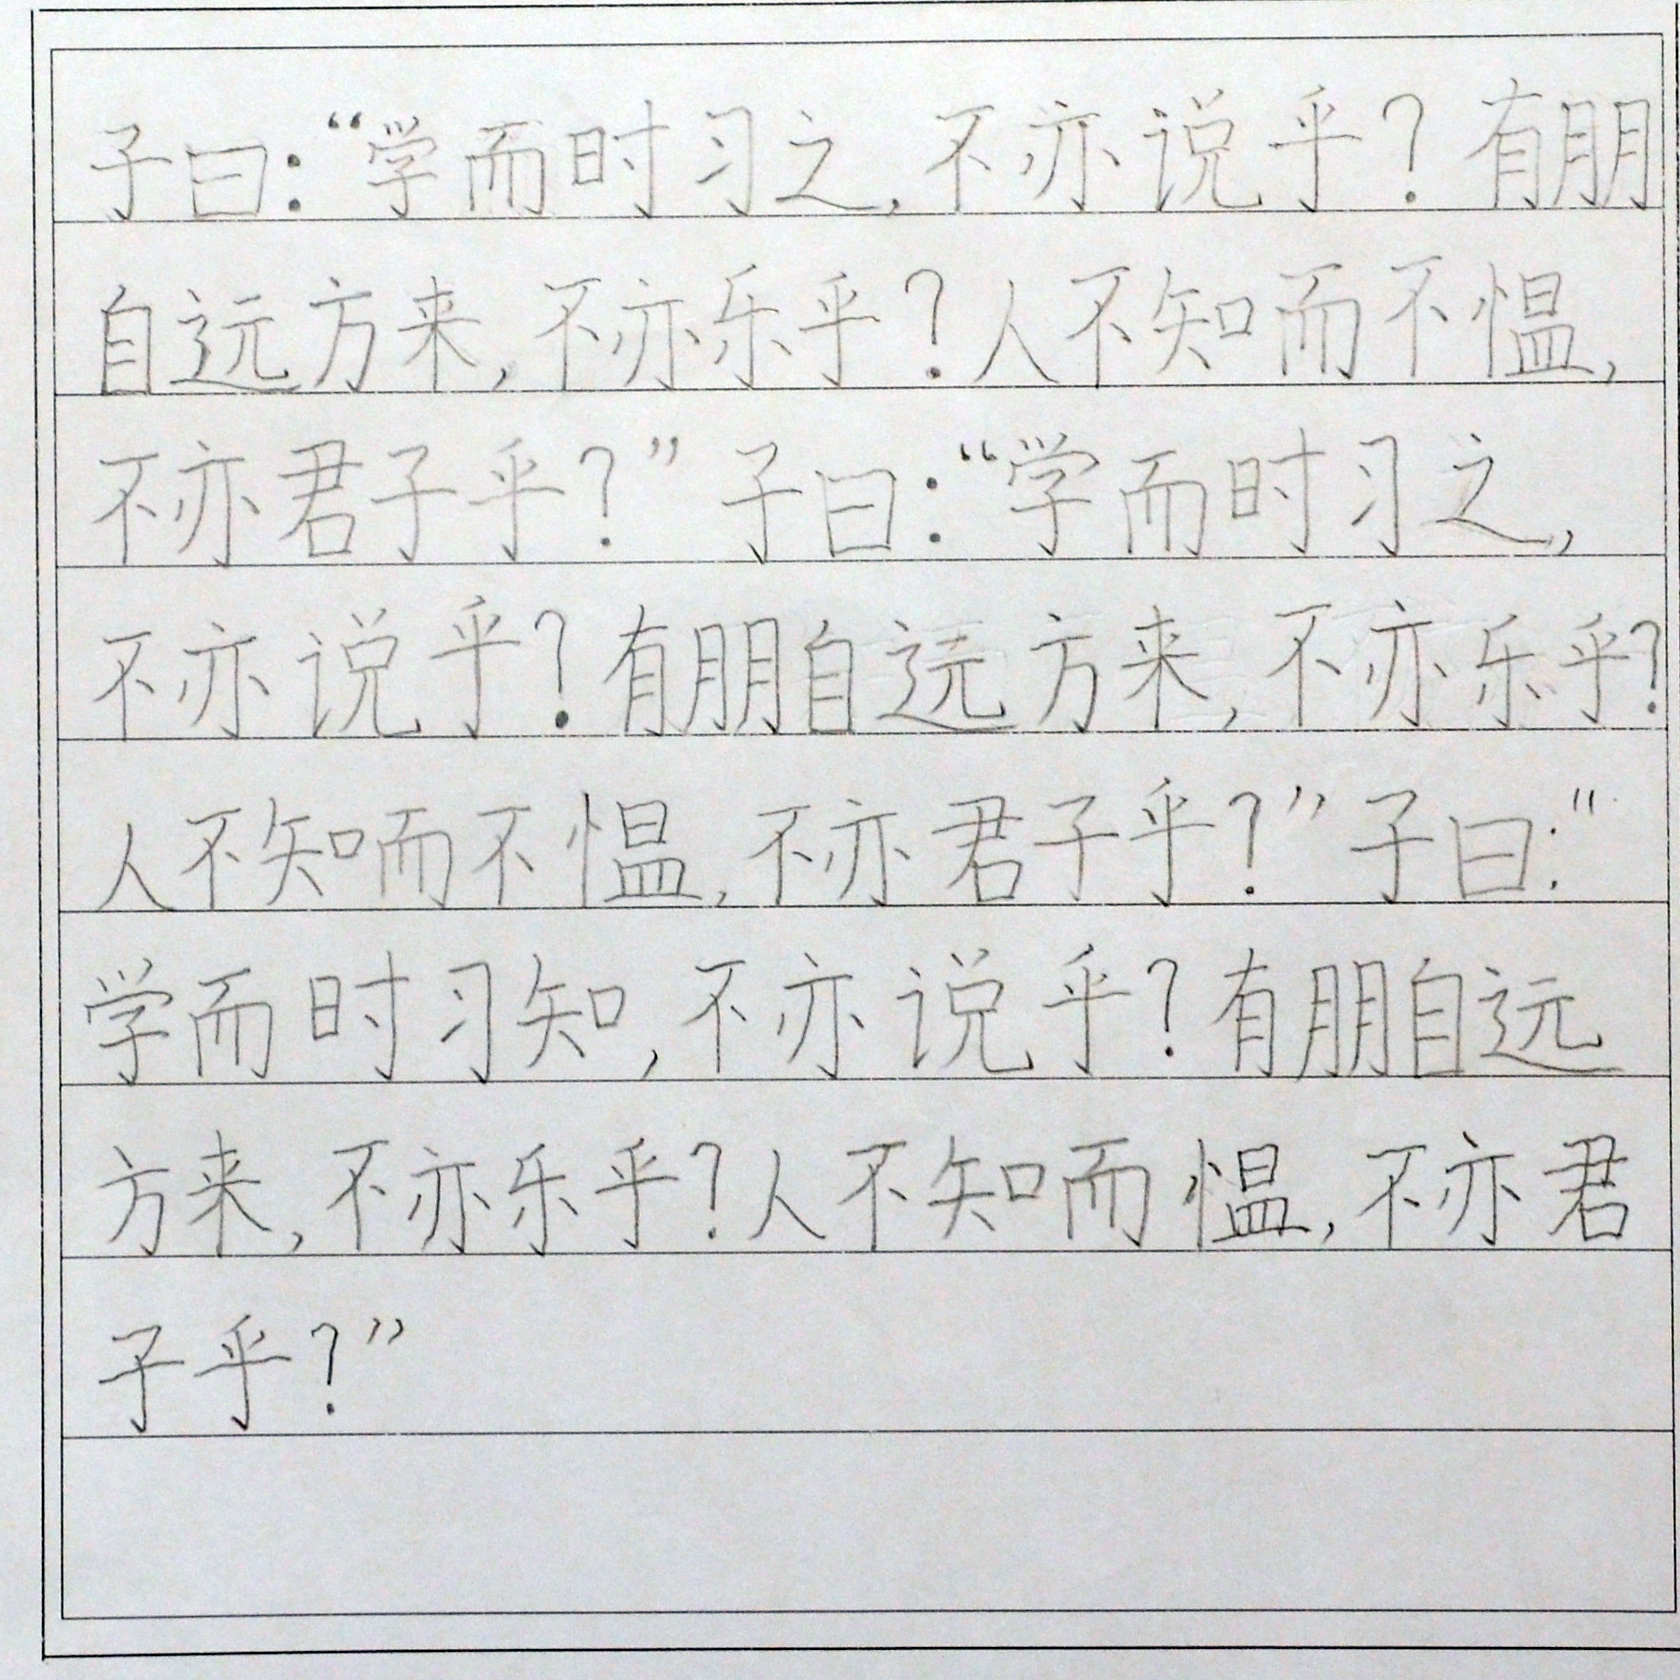 子曰：“学而时习之，不亦说乎？有朋
自远方来，不亦乐乎？人不知而不愠，
不亦君子乎？”子曰：“学而时习之，
不亦说乎？有朋自远方来，不亦乐乎？
人不知而不愠，不亦君子乎？”子曰：“
学而时习知，不亦说乎？有朋自远
方来，不亦乐乎？人不知而愠，不亦君
子乎？”